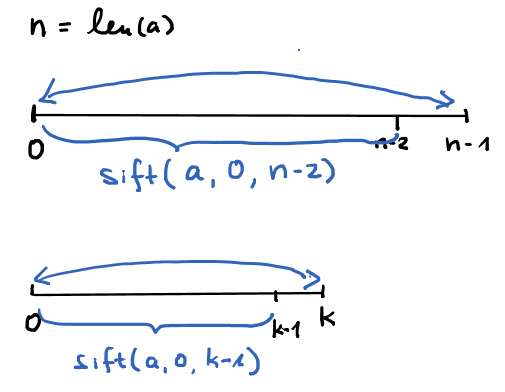 n = len(a)
0 n-2 n-1
sift(a, 0, n-2)
0 k-1 k
sift(a, 0, k-1)